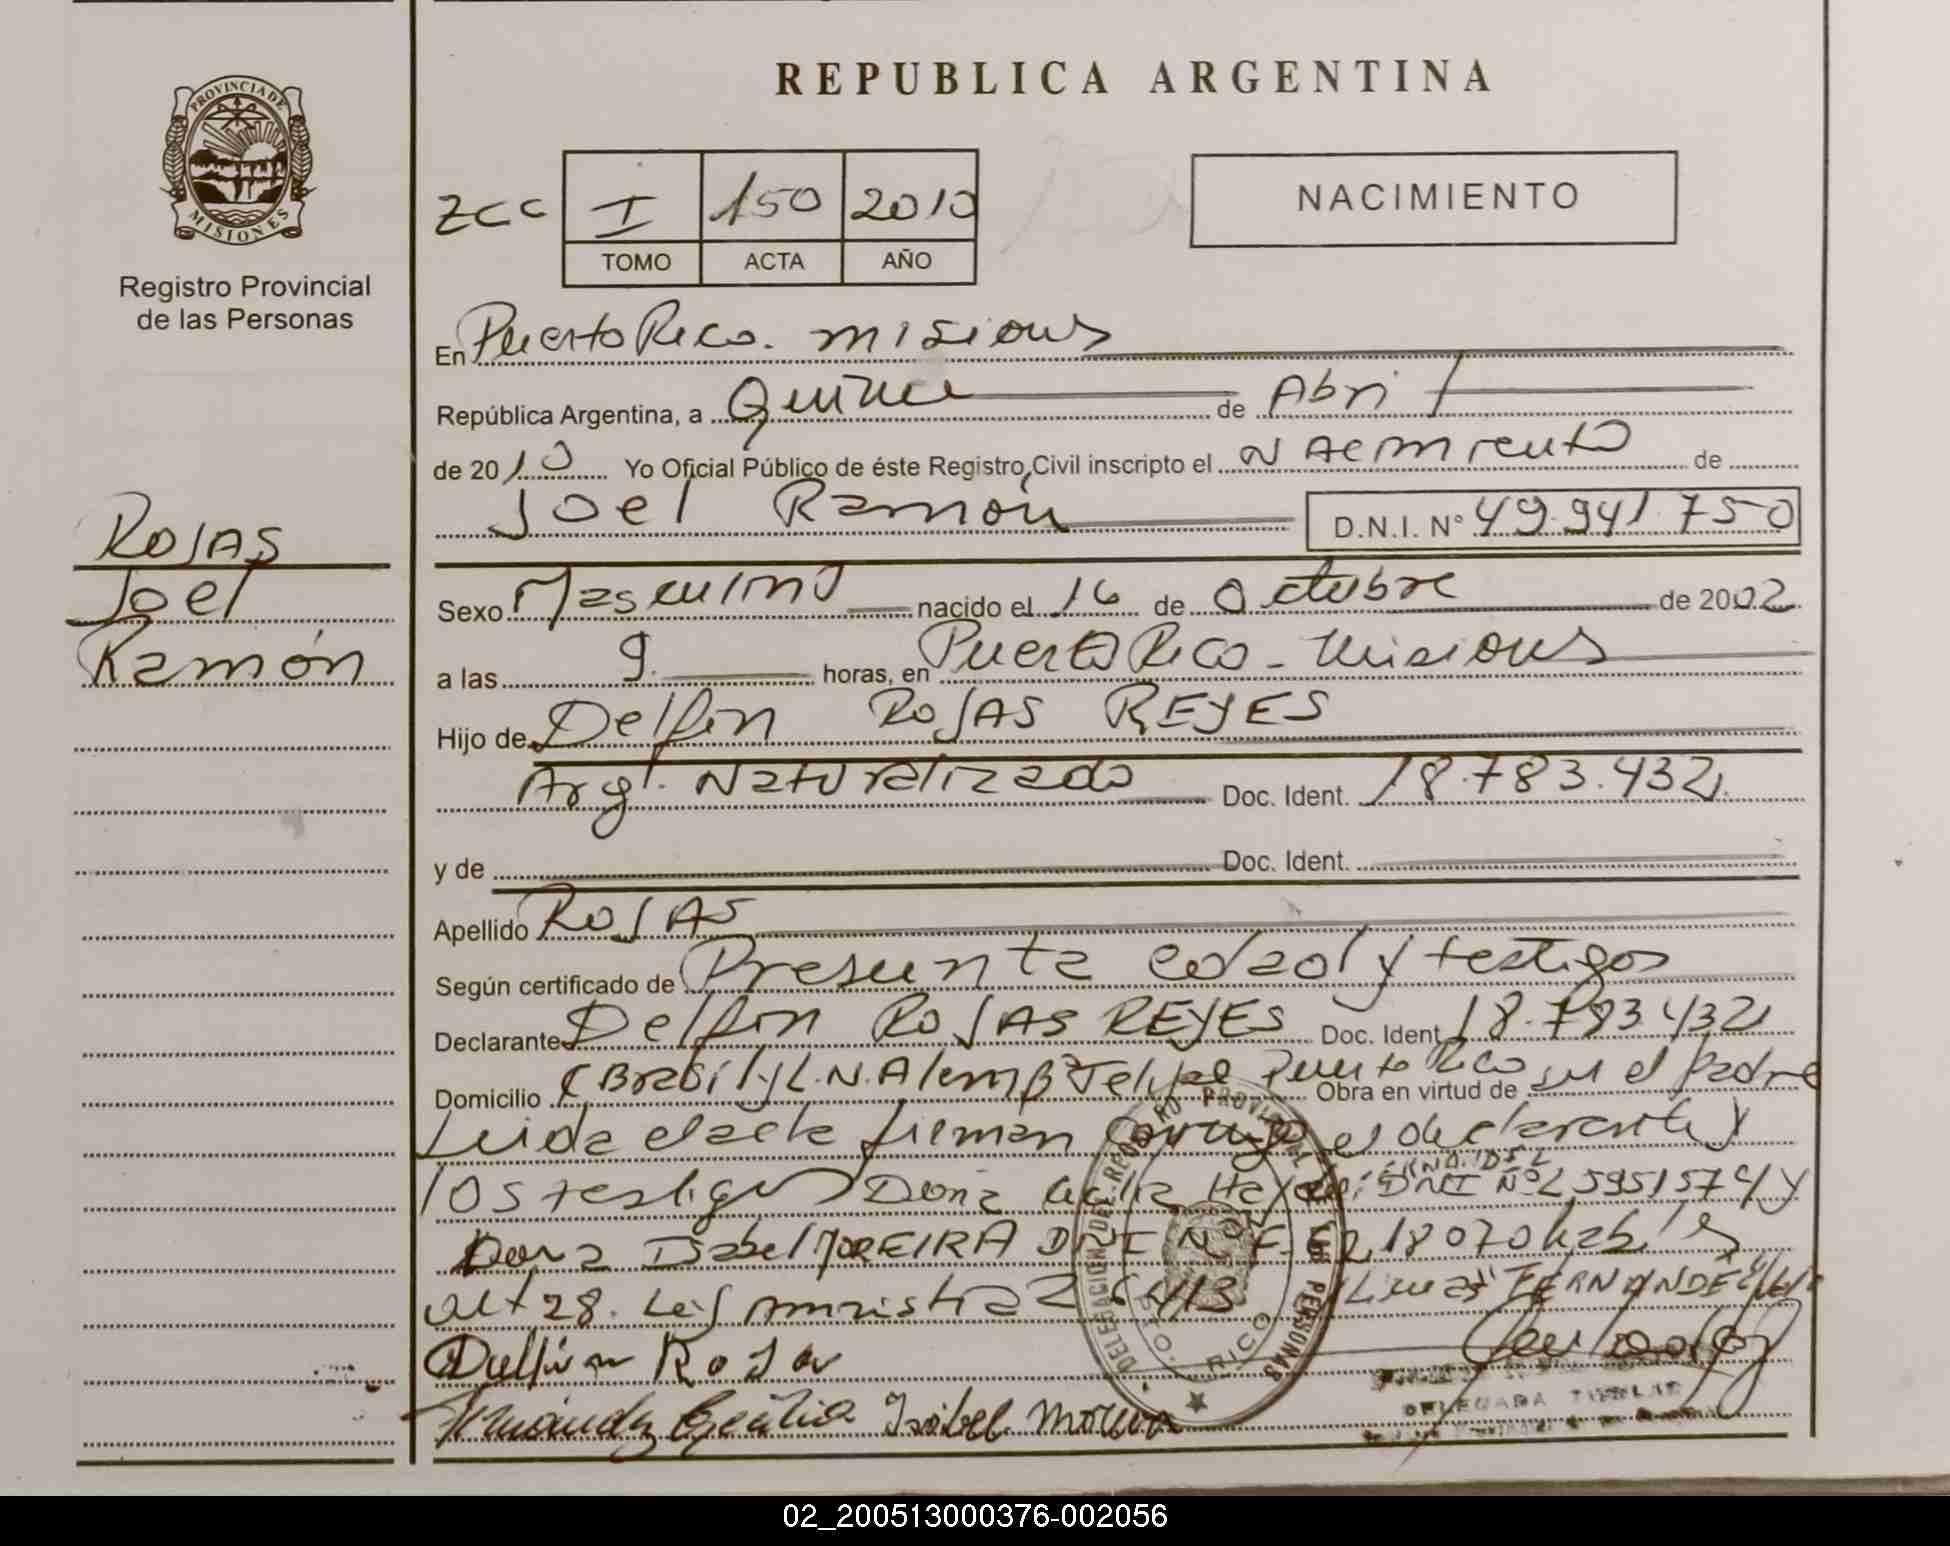 REPUBLICA ARGENTINA
PROVINCIA DE
MISIONES
Registro Provincial
de las Personas
NACIMIENTO
zcc I 150 2010
TOMO ACTA AÑO
En Puerto Rico. Misiones
República Argentina, a Quince de Abril
de 2010 Yo Oficial Público de éste Registro Civil inscripto el Nacimiento de
Joel Ramón D.N.I. N° 49.941.750
ROJAS
Joel
Ramón
Sexo Masculino nacido el 16 de Octubre de 2002
a las 9. horas, en Puerto Rico - Misiones
Hijo de Delfin ROJAS REYES
Arg. Naturalizado Doc. Ident. 18.783.432
y de Doc. Ident.
Apellido ROJAS
Según certificado de Presunta edad y testigos
Declarante Delfin ROJAS REYES Doc. Ident. 18.783.432
Domicilio Brasil y L.N. Alem Bº Felipe Puerto Rico Obra en virtud de ser el Padre
Leida el acta firman conmigo el declarante y
los testigos Doña DNI Nº 25951574 y
Doña Isabel MOREIRA DNI Nº F. 6218070 habiles
Ley 26413 FERNANDEZ
DELEGACION DEL REGISTRO PROVINCIAL DE LAS PERSONAS
PTO. RICO
Delfin Rojas
Isabel
DELEGADA TITULAR
02_200513000376-002056